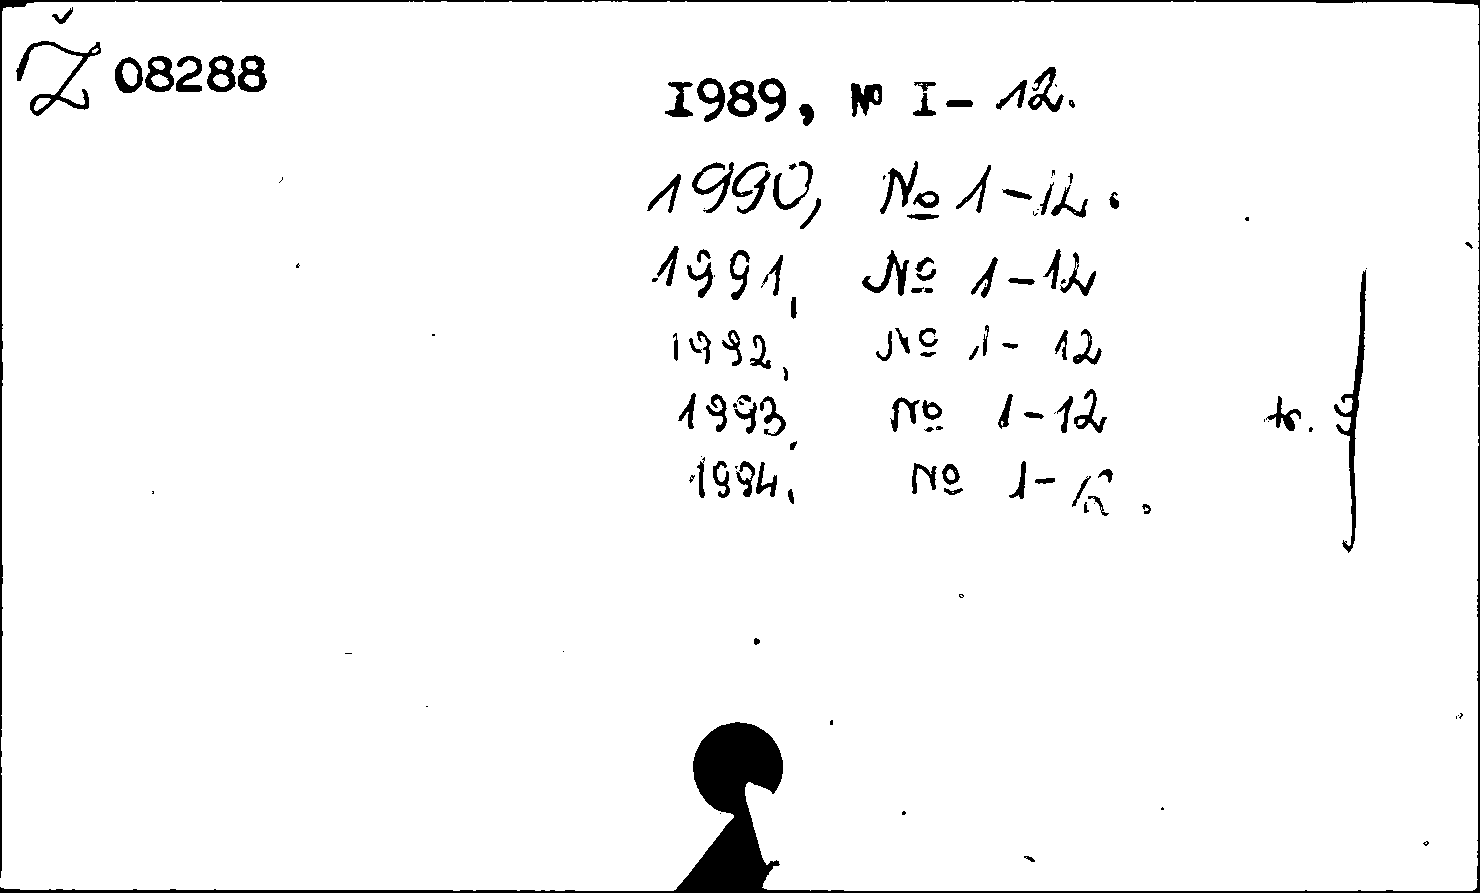 Ž 08288
I989, № I - 12.
1990, № 1-12.
1991, № 1-12
1992, № 1- 12
1993, № 1-12 tr. 9
1994. № 1-12.